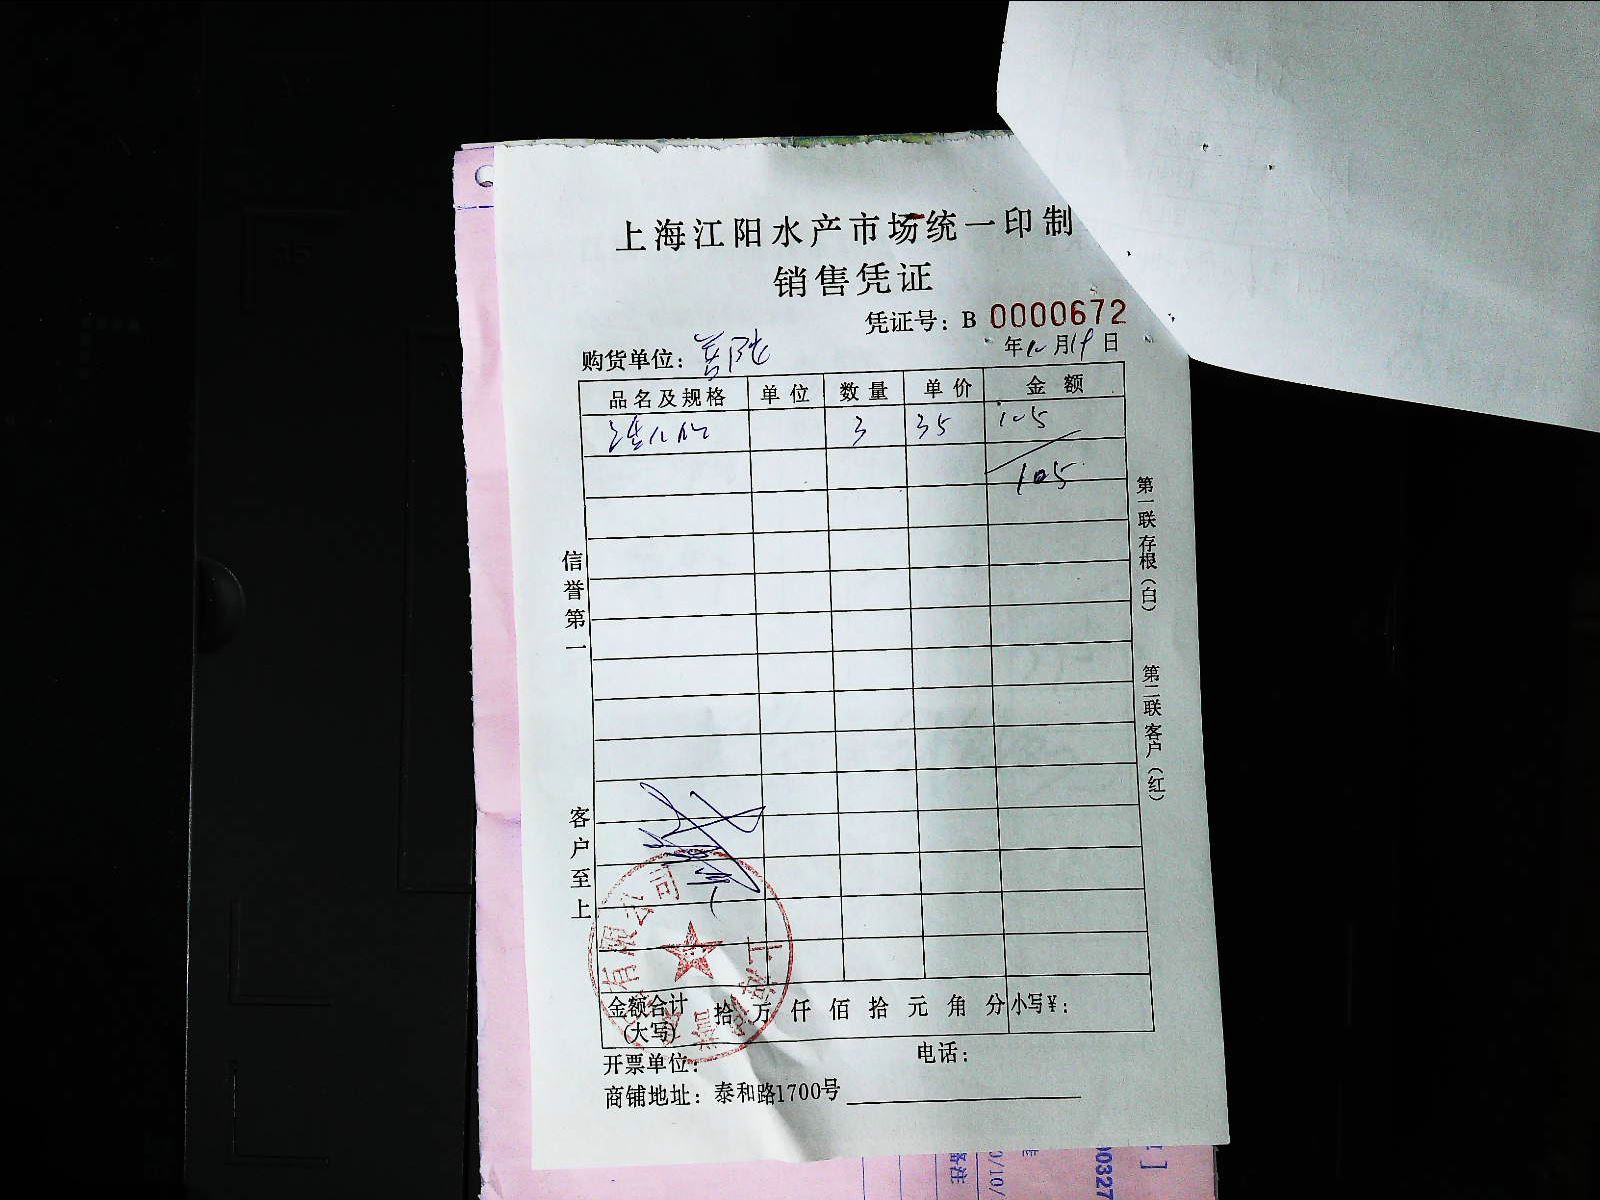 上海江阳水产市场统一印制
销售凭证
凭证号：B 0000672
购货单位：普陀 年12月19日
品名及规格 单位 数量 单价 金额
3 35 105
105
信誉第一
客户至上
第一联存根（白）
第二联客户（红）
金额合计（大写） 拾万仟佰拾元角分 小写¥：
开票单位： 电话：
商铺地址：泰和路1700号
有限公司
上海
备注
00327